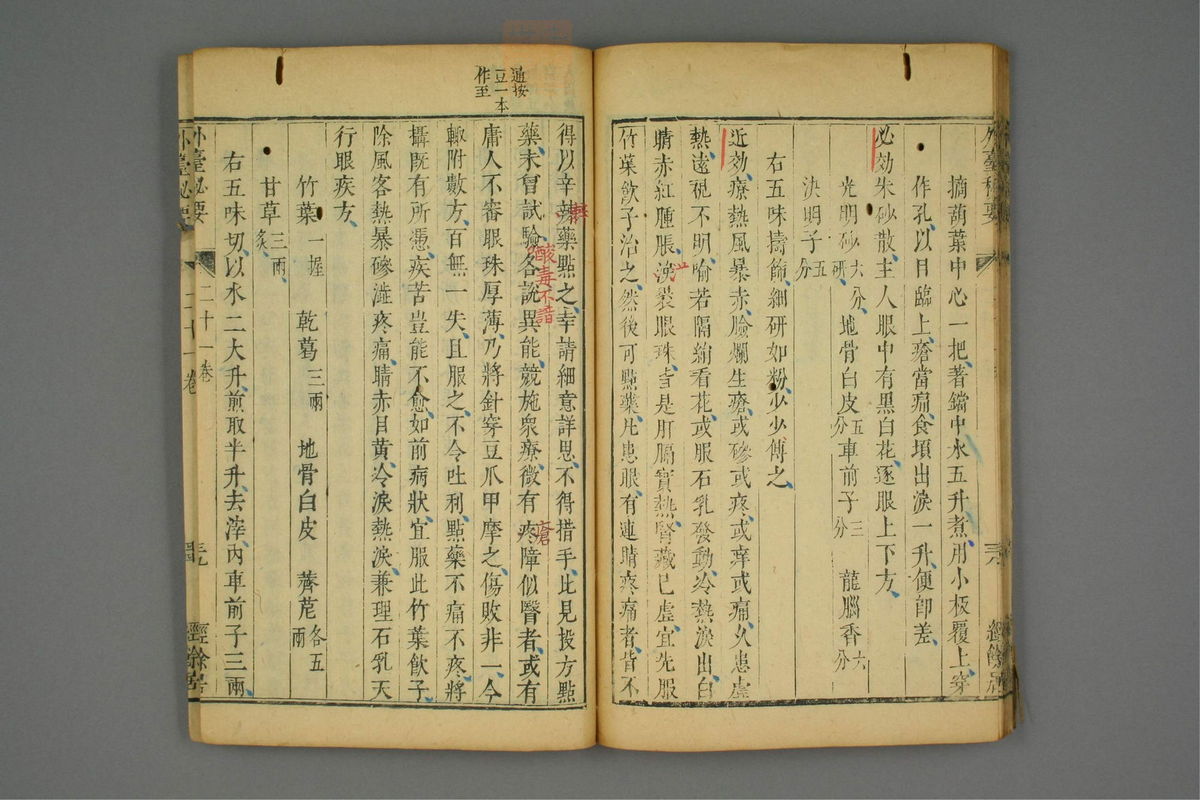 摘葫葉中心一把著鐺中水五升煮用小板覆上穿
作孔以目臨上瘡當痛食頃出淚一升便卽差
必効朱砂散主人眼中有黑白花逐眼上下方
光明砂六分研 地骨白皮五分 車前子三分 龍腦香六分
決明子五分
右五味擣篩細研如粉少少傅之
近効療熱風暴赤瞼爛生瘡或磣或疼或痒或痛久患虛
熱遠視不明喻若隔絹看花或服石乳發動冷熱淚出白
睛赤紅腫脹裹眼珠皆是肝膈實熱腎藏已虛宜先服
竹葉飮子治之然後可㸃藥凡患眼有連睛疼痛者皆不
得以辛辣藥㸃之幸請細意詳思不得措手比見投方㸃
藥未曾試驗各説異能競施衆療徵有疼障似醫者或有
庸人不審眼珠厚薄乃將針穿豆爪甲摩之傷敗非一今
輙附數方百無一失且服之不令吐利㸃藥不痛不疼將
攝旣有所憑疾苦豈能不愈如前病狀宜服此竹葉飮子
除風客熱暴磣澁疼痛睛赤目黃冷淚熱淚兼理石乳天
行眼疾方
竹葉一握 乾葛三兩 地骨白皮 薺苨各五兩
甘草三兩炙
右五味切以水二大升煎取半升去滓內車前子三兩
外臺秘要
二十一卷
經餘居
通按
豆一本
作至
酸毒不諳
瘡